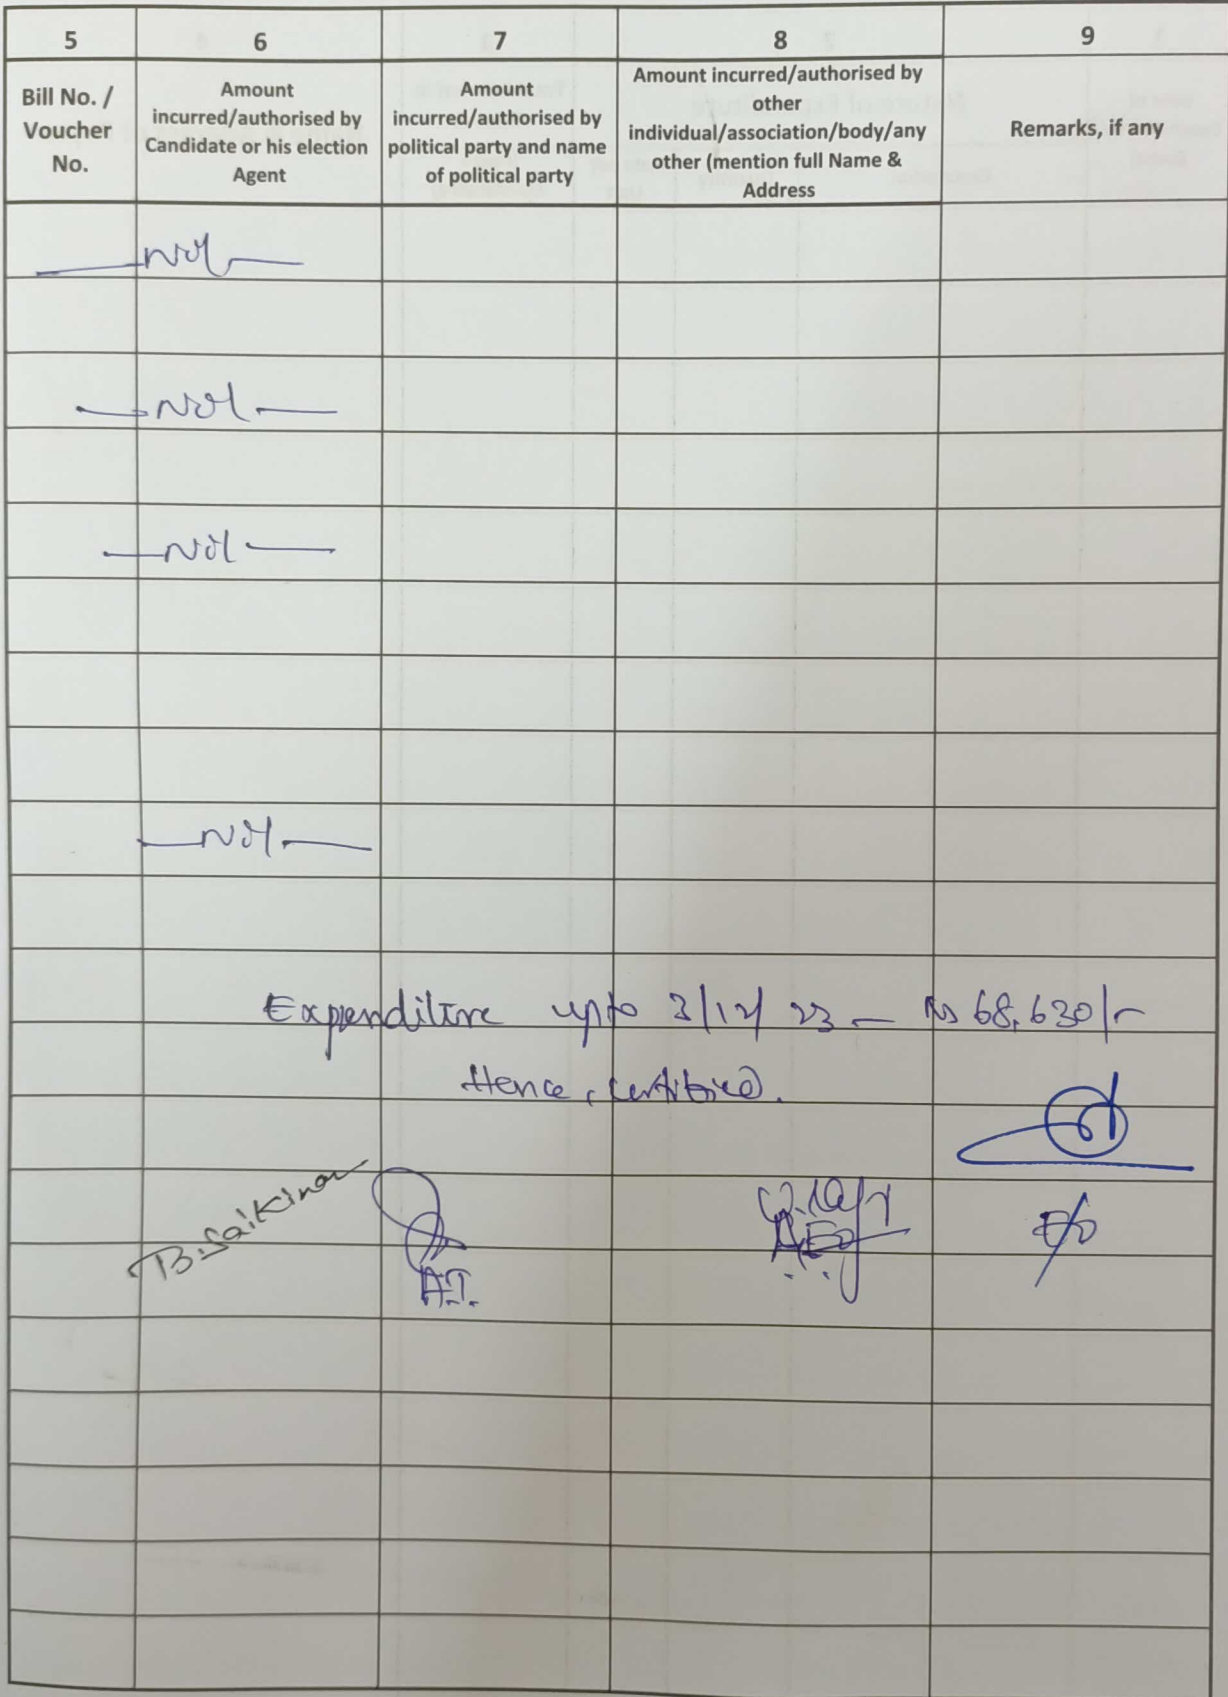 5 6 7 8 9
Bill No. /
Voucher
No.
Amount
incurred/authorised by
Candidate or his election
Agent
Amount
incurred/authorised by
political party and name
of political party
Amount incurred/authorised by
other
individual/association/body/any
other (mention full Name &
Address
Remarks, if any
Nil
Nil
Nil
Nil
Expenditure upto 3/12/23 - Rs 68,630/-
Hence, certified.
B. Saikiran
A.T.
AEO
E/O